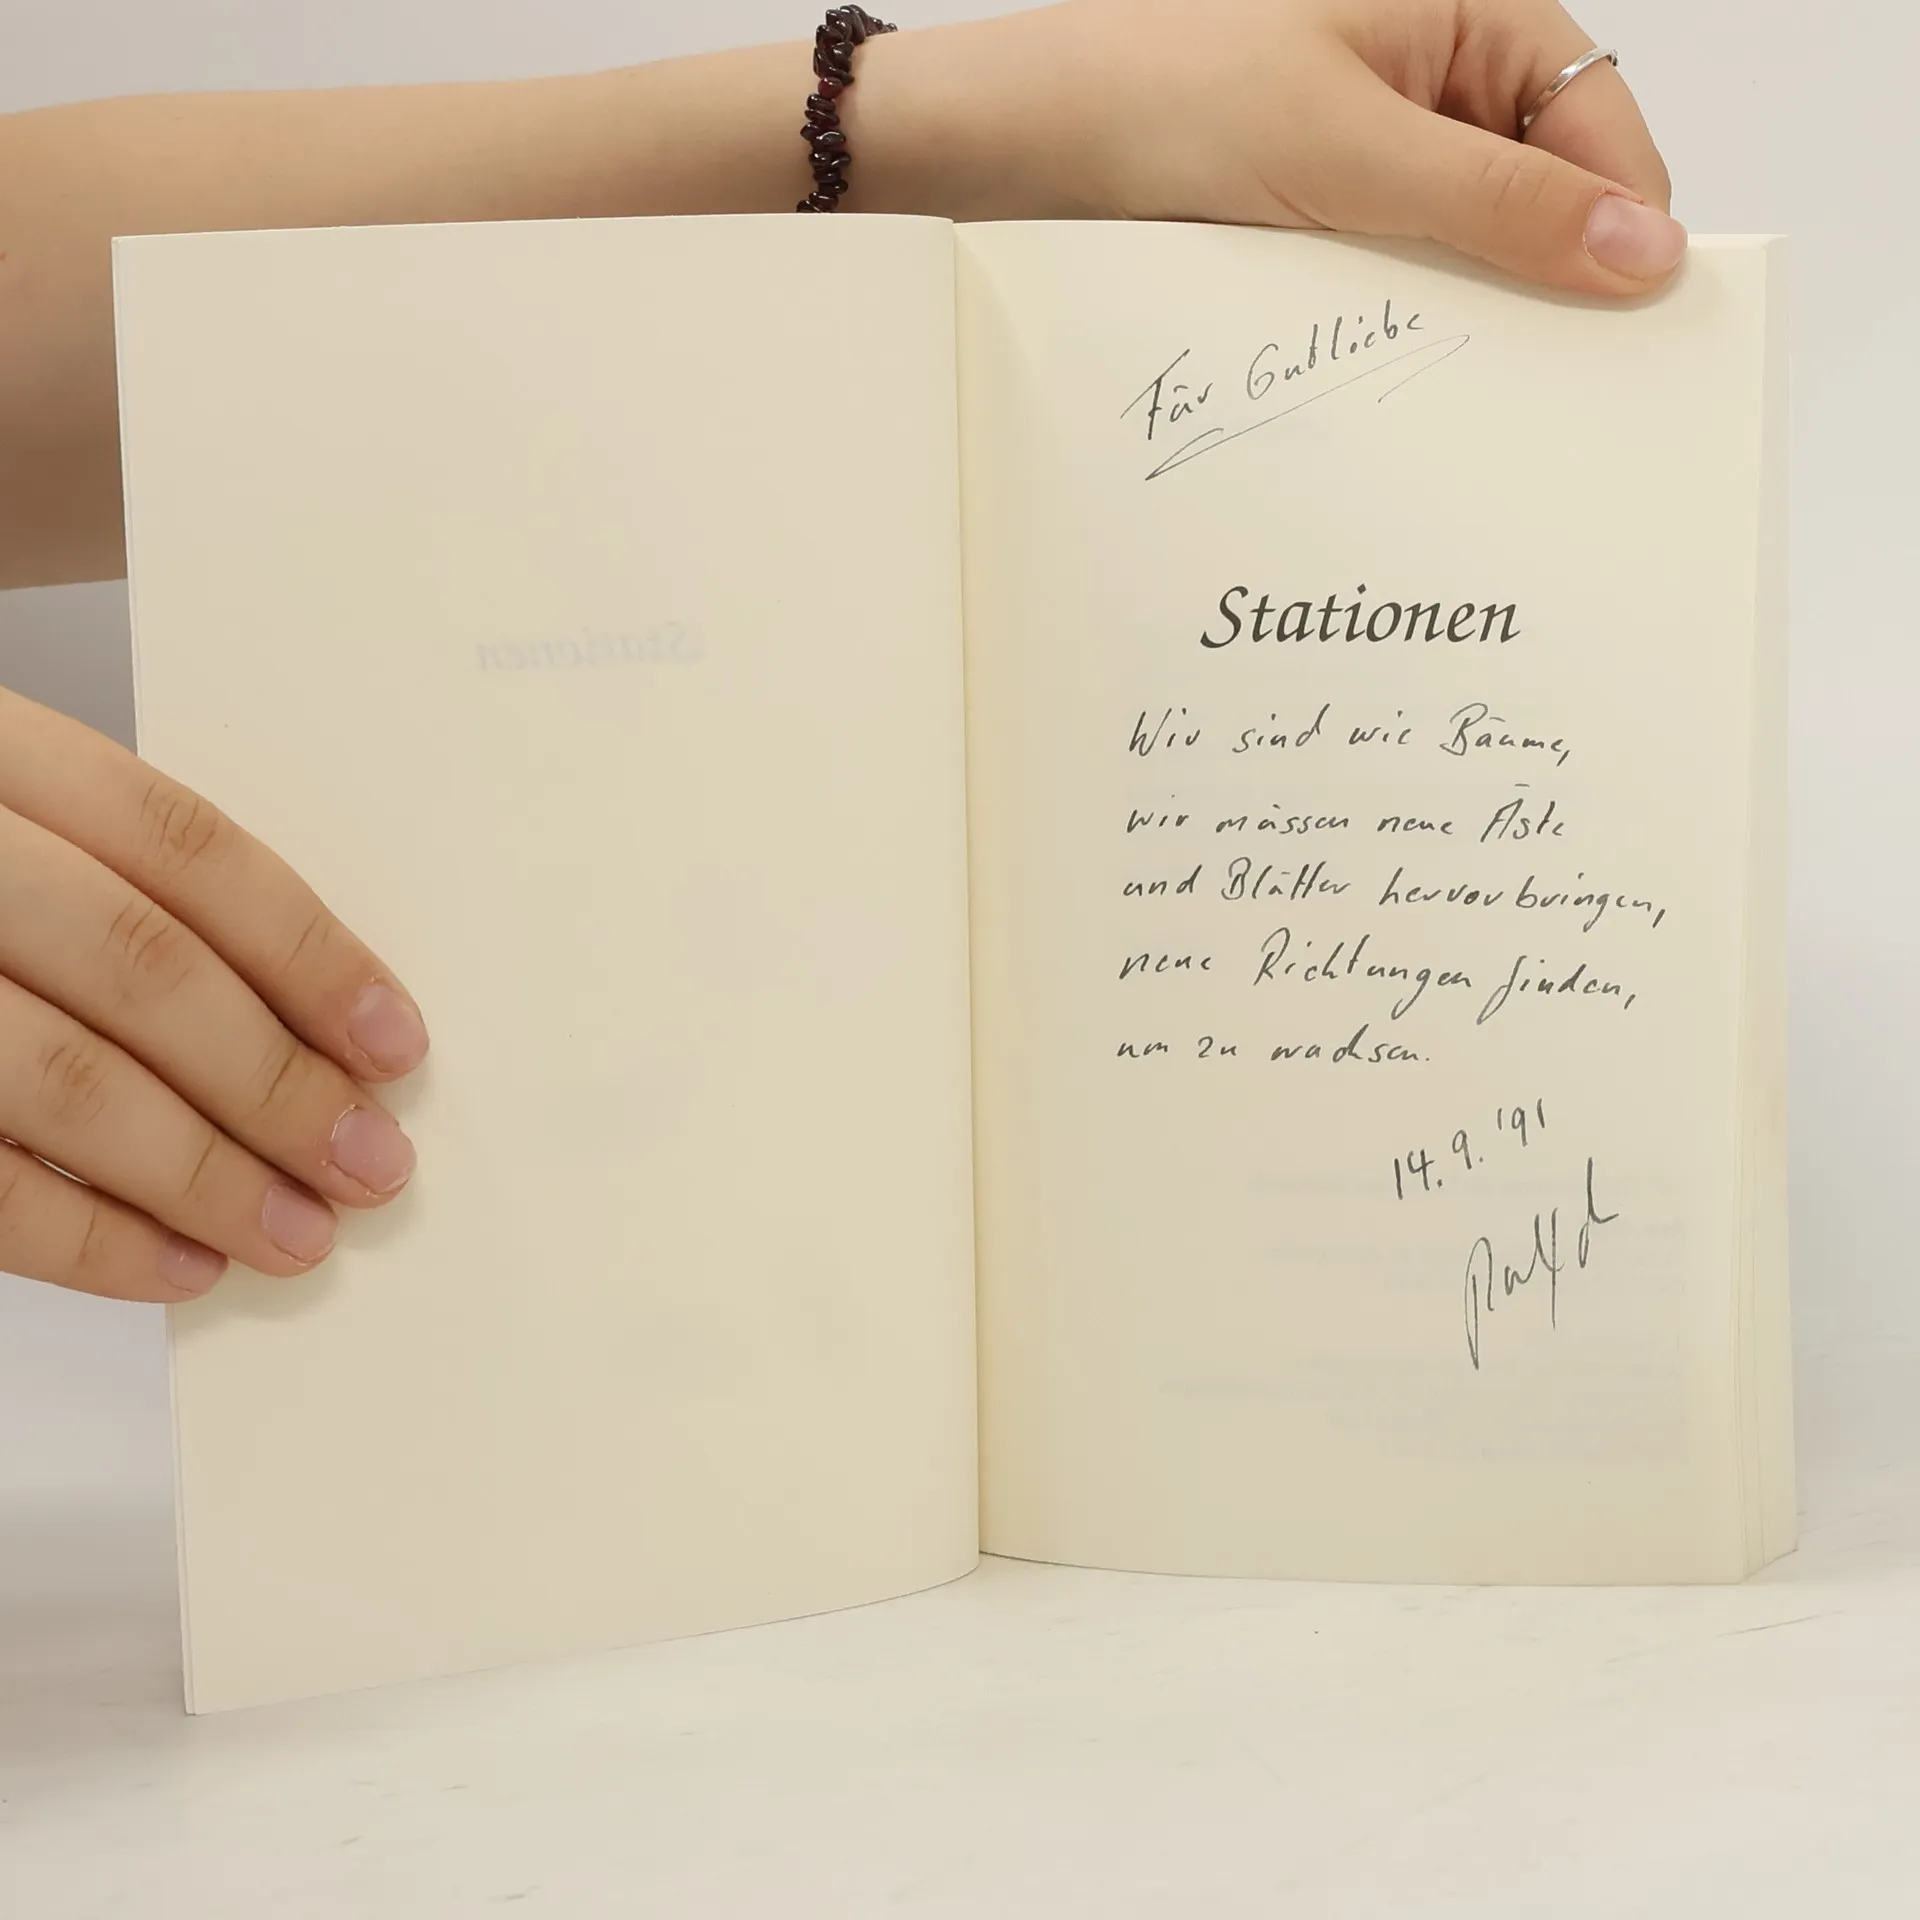 Für Gutliebe
Stationen
Wir sind wie Bäume,
wir müssen neue Äste
und Blätter hervorbringen,
neue Richtungen finden,
um zu wachsen.
14.9.'91